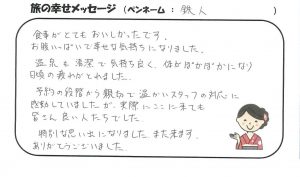 旅の幸せメッセージ（ペンネーム：鉄人）
食事がとてもおいしかったです。
お腹いっぱいで幸せな気持ちになりました。
温泉も清潔で気持ち良く、体がぽかぽかになり
日頃の疲れがとれました。
予約の段階から親切で温かいスタッフの対応に
感動していましたが、実際にここに来ても
皆さん良い人たちでした。
特別な思い出になりました。また来ます。
ありがとうございました。